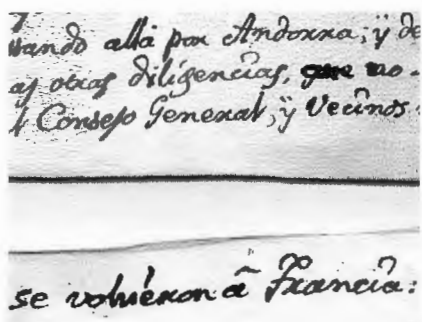 ando allà por Andorra; ÿ de
as otras diligencias, que no
l Consejo General, ÿ Vecinos
se volviéron â Francia: